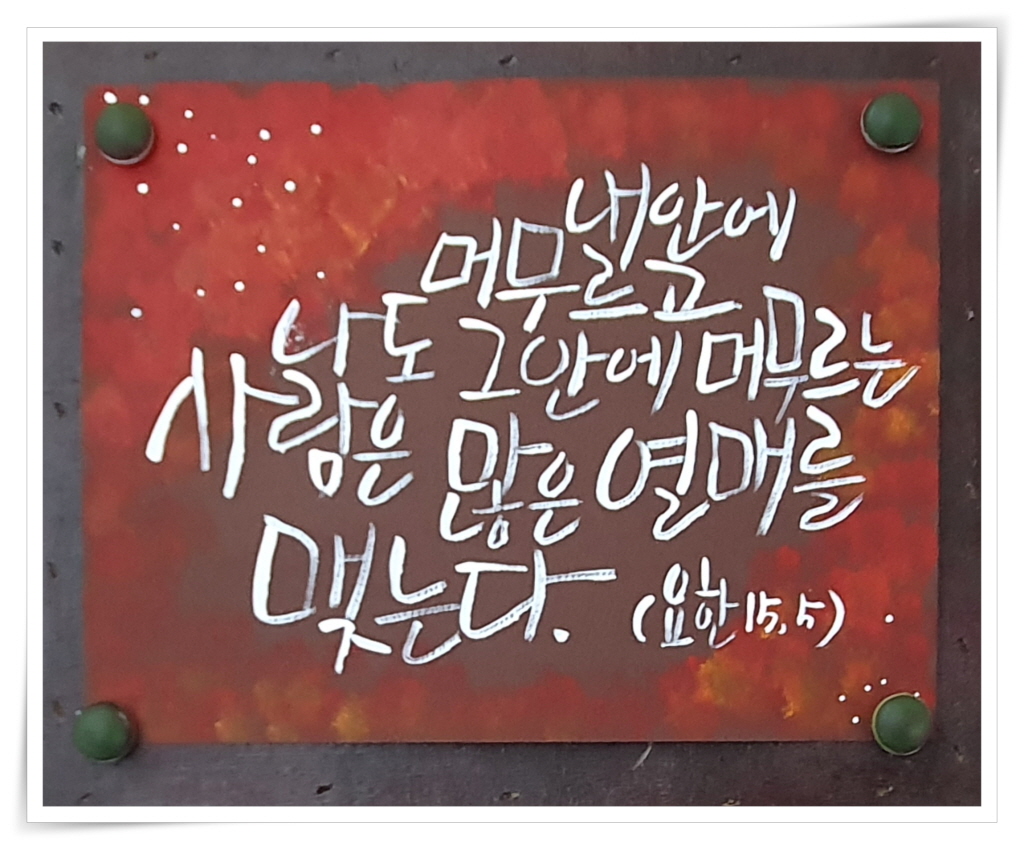 내 안에
머무르고
나도 그 안에 머무르는
사람은 많은 열매를
맺는다. (요한 15, 5)